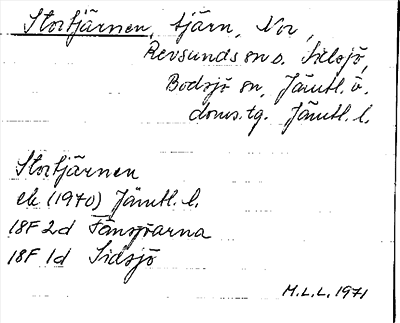 Stortjärnen, tjärn, Nor,
Revsunds sn o. Sidsjö,
Bodsjö sn, Jämtl. ö.
doms.tg. Jämtl. l.
Stortjärnen
ek (1970) Jämtl. l.
18F 2d Fånsjöarna
18F 1d Sidsjö
M.L.L. 1971